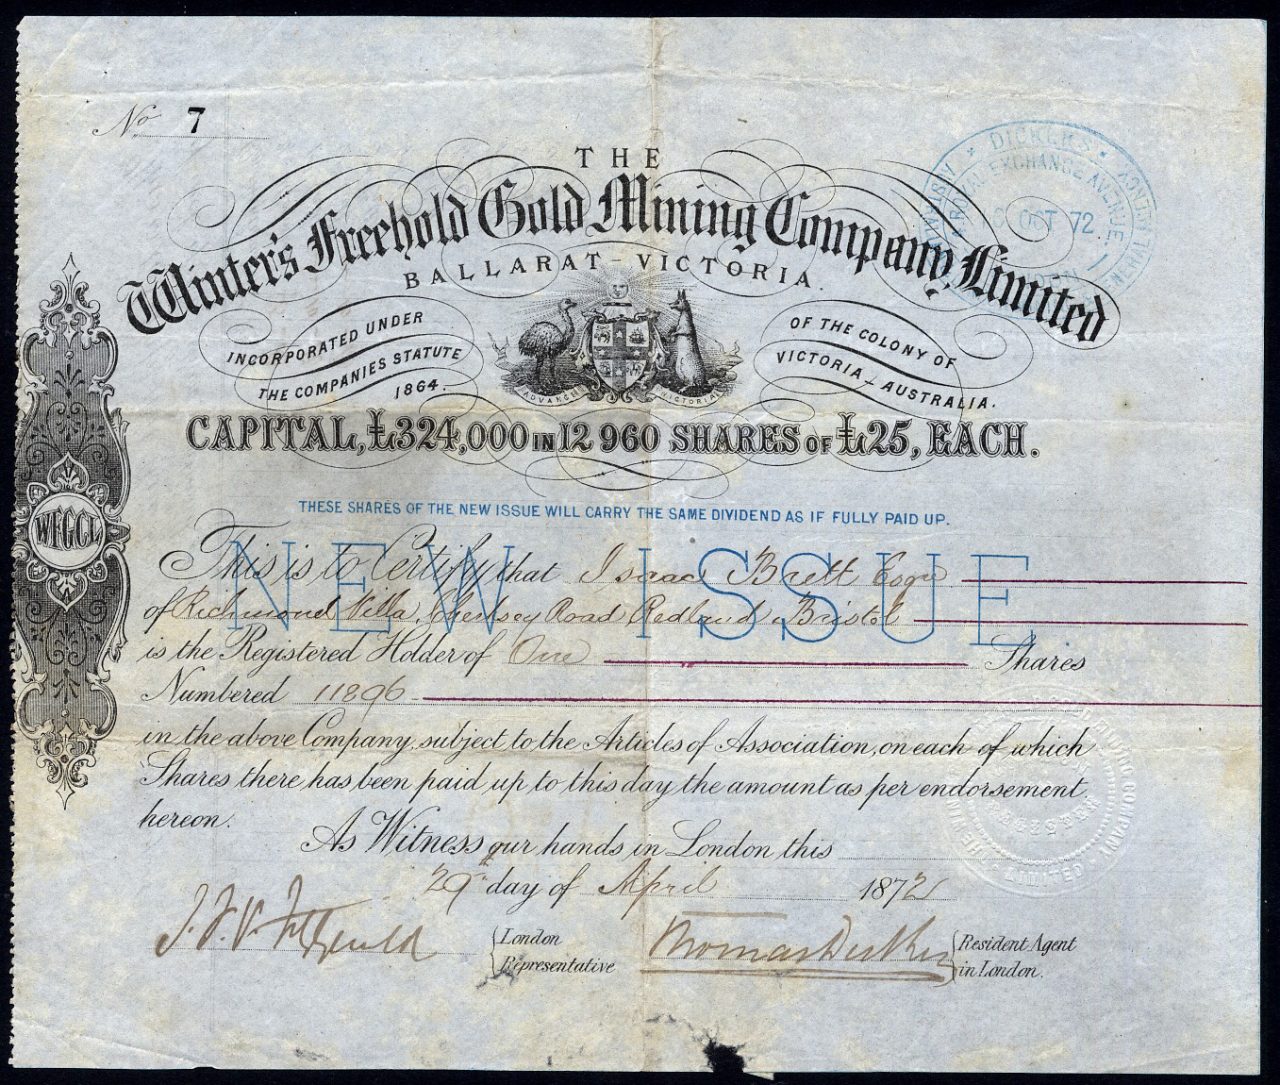 No 7
THE
Winter's Freehold Gold Mining Company, Limited
BALLARAT - VICTORIA.
DICKER'S
ROYAL EXCHANGE AVENUE
OCT 72
INCORPORATED UNDER
THE COMPANIES STATUTE
1864.
OF THE COLONY OF
VICTORIA - AUSTRALIA.
ADVANCE VICTORIA
CAPITAL, £324,000 IN 12 960 SHARES OF £25, EACH.
THESE SHARES OF THE NEW ISSUE WILL CARRY THE SAME DIVIDEND AS IF FULLY PAID UP.
NEW ISSUE
WFGCL
This is to Certify that Isaac Brett Esqre
of Richmond Villa, Road Redland Bristol
is the Registered Holder of One Shares
Numbered 11896
in the above Company, subject to the Articles of Association, on each of which
Shares there has been paid up to this day the amount as per endorsement
hereon.
As Witness our hands in London this
29th day of April 1872
London
Representative
Resident Agent
in London.